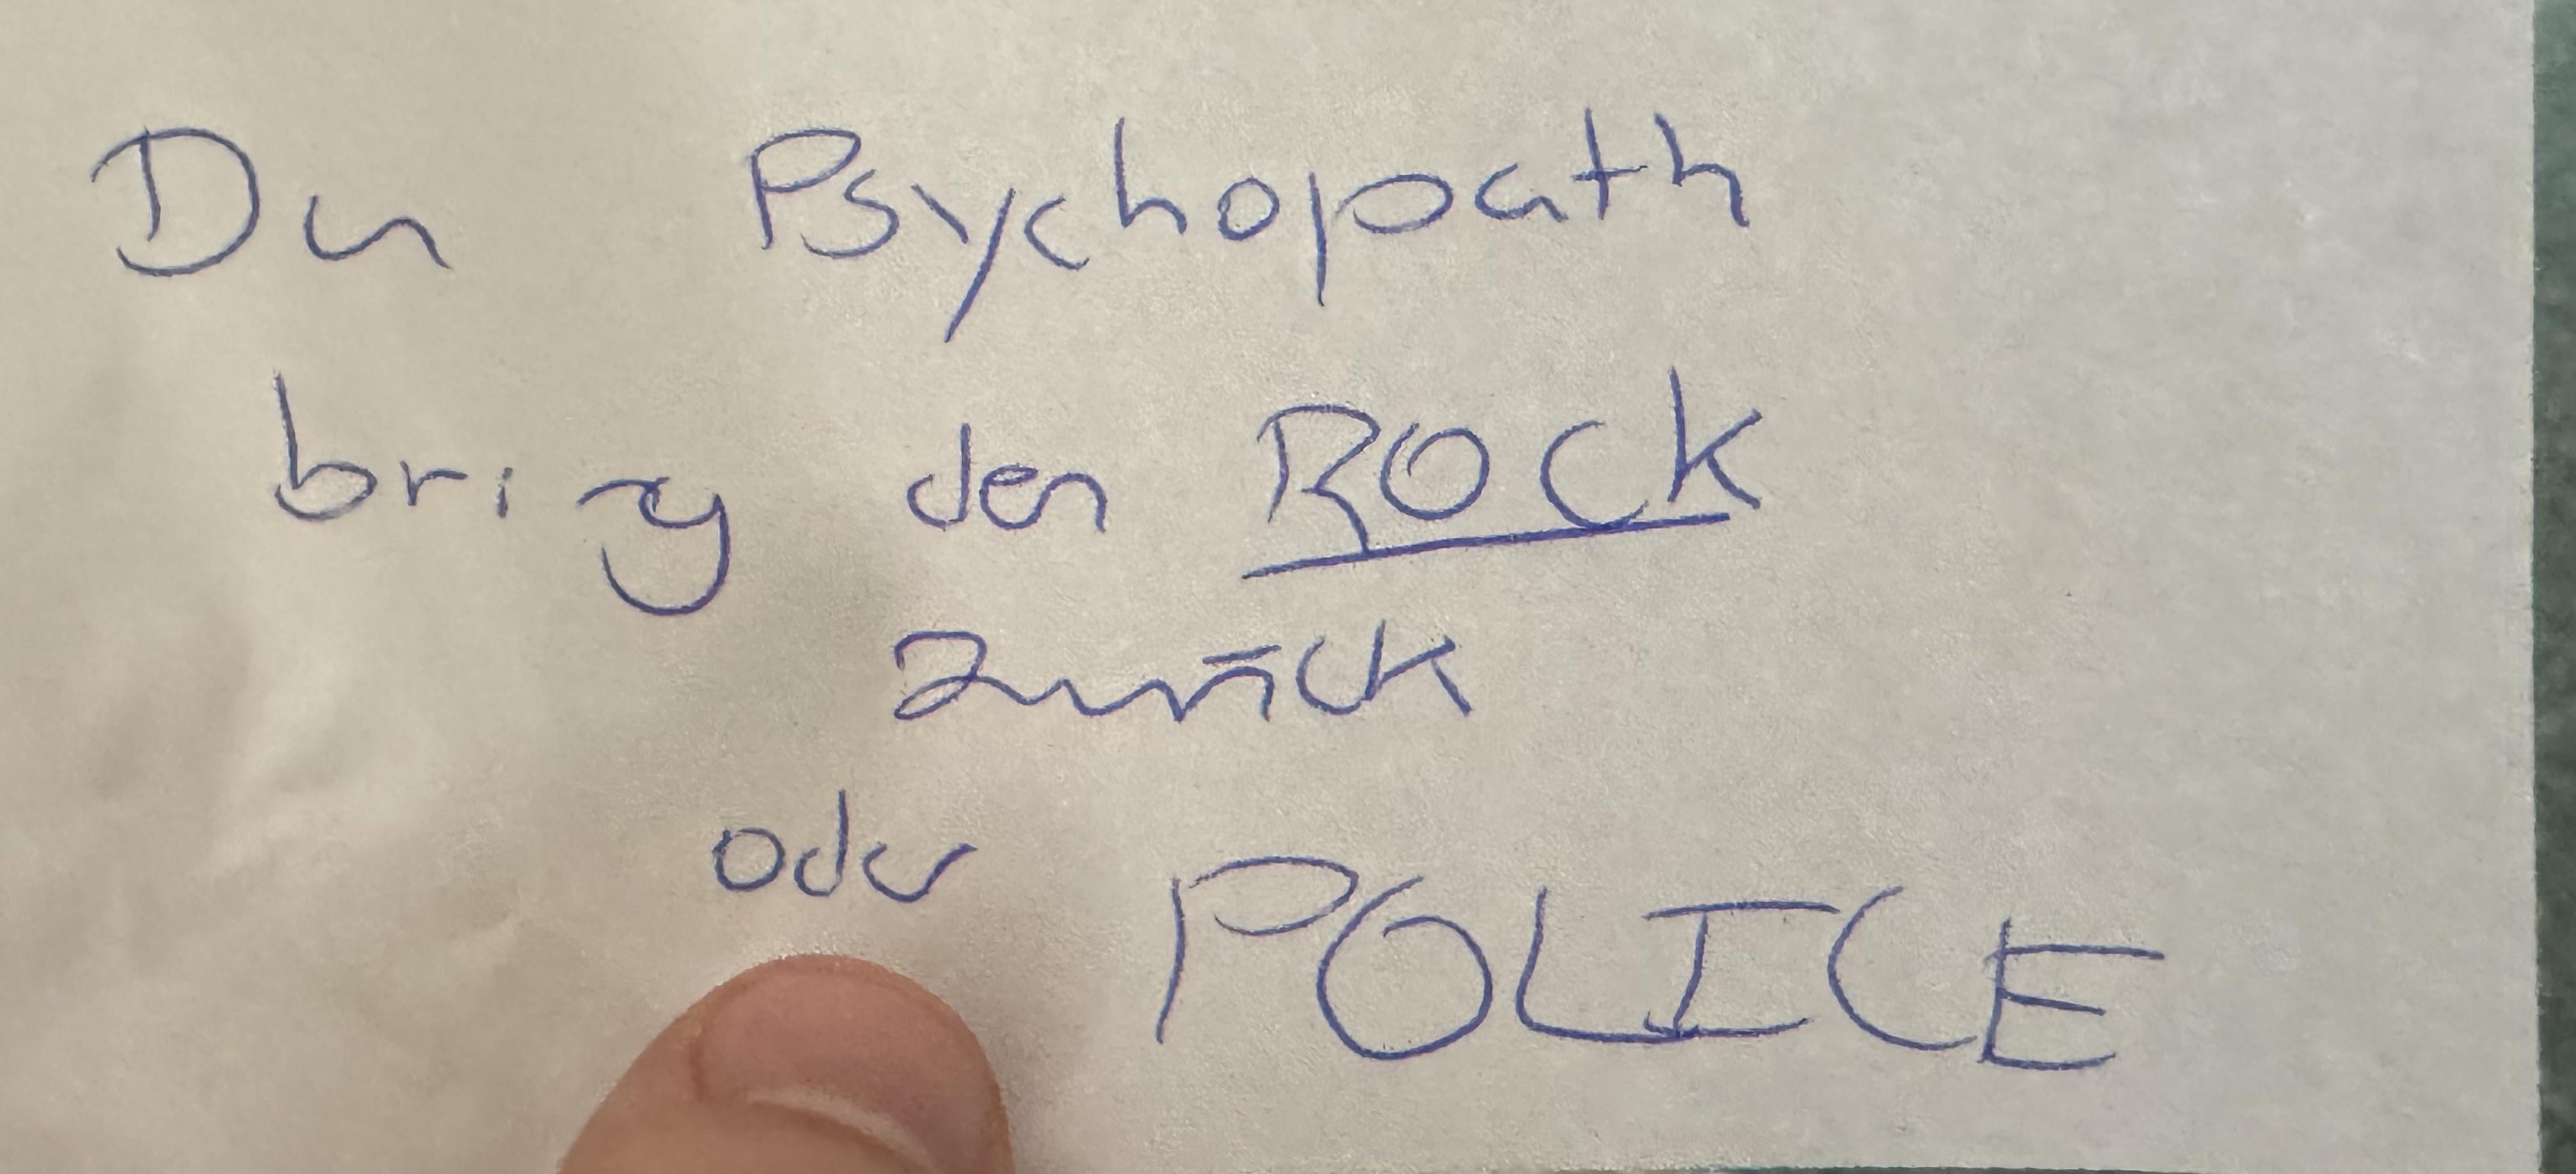 Du Psychopath
bring den ROCK
zurück
oder POLICE